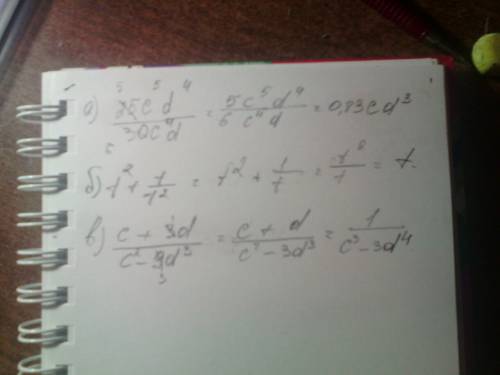 а) 25c⁵d⁴/30c⁴d = 5c⁵d⁴/6c⁴d = 0,83cd³
б) t² + 1/t² = t² + 1/t = t²/t = t
в) c + 3d/c² - 9d³ = c + d/c² - 3d³ = 1/c³ - 3d⁴